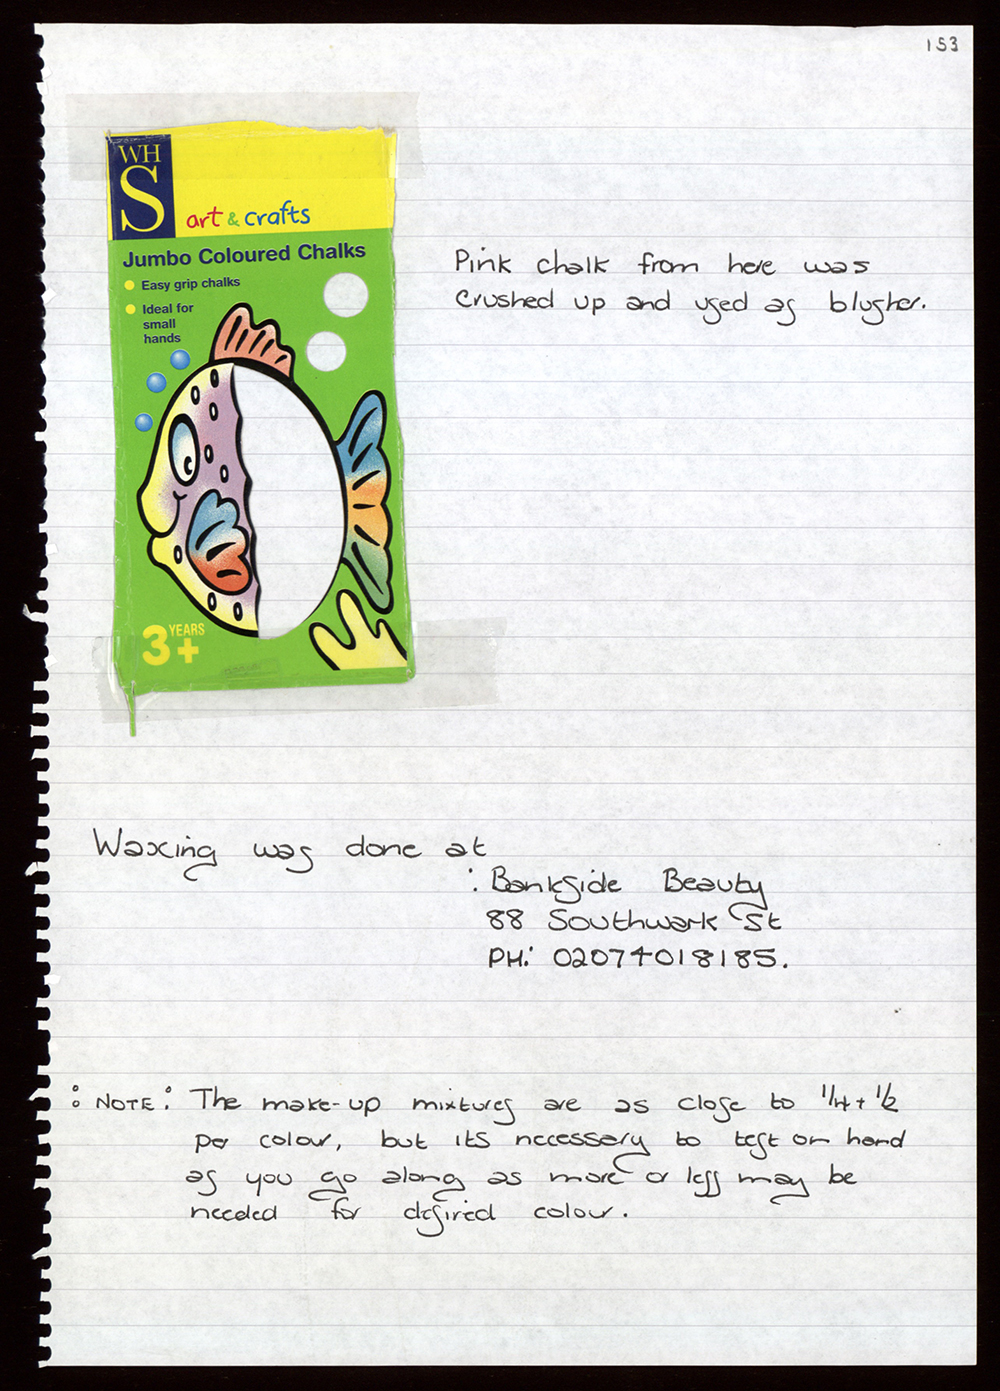 153
WH
S
art & crafts
Jumbo Coloured Chalks
Easy grip chalks
Ideal for
small
hands
3 YEARS
+
Pink chalk from here was
crushed up and used as blusher.
Waxing was done at
: Bankside Beauty
88 Southwark St
PH: 02074018185.
: NOTE: The make-up mixtures are as close to 1/4 + 1/2
per colour, but its necessary to test on hand
as you go along as more or less may be
needed for desired colour.